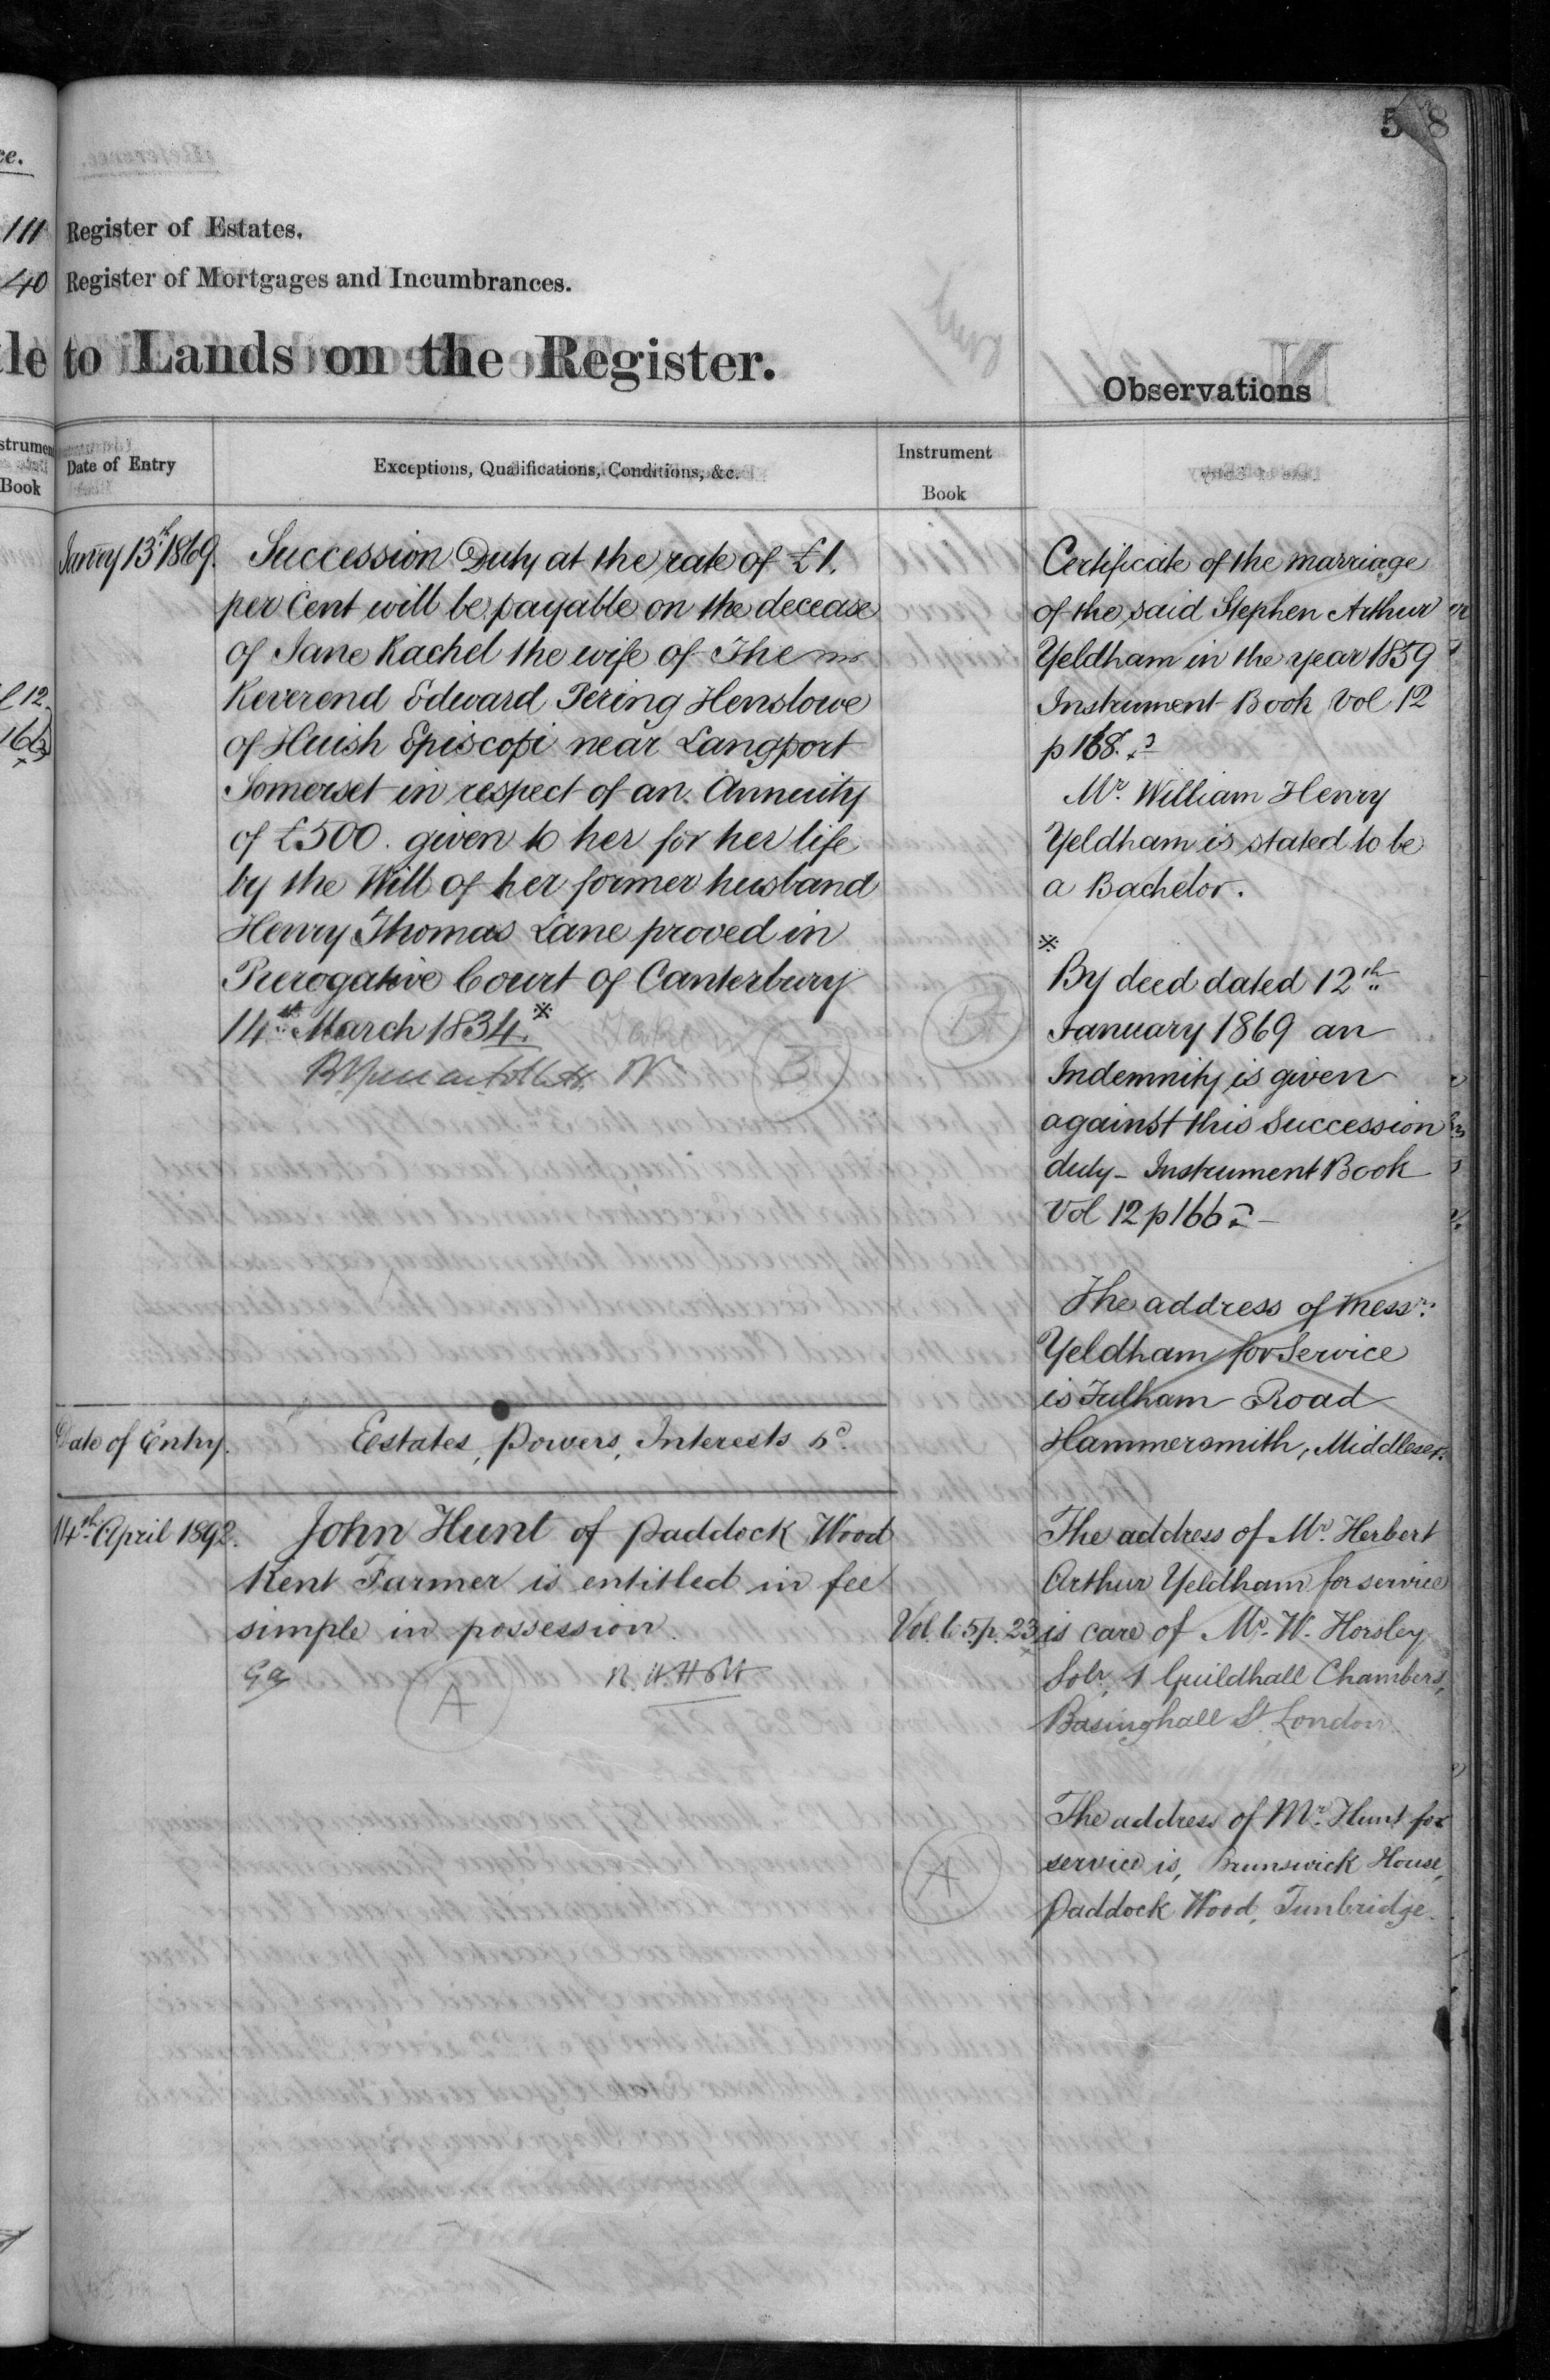 111 Register of Estates.
40 Register of Mortgages and Incumbrances.
to Lands on the Register.
Observations
Date of Entry
Exceptions, Qualifications, Conditions, &c.
Instrument
Book
Janry 13th 1869.
Succession Duty at the rate of £1.
per Cent will be payable on the decease
of Jane Rachel the wife of The
Reverend Edward Pering Henslowe
of Huish Episcopi near Langport
Somerset in respect of an Annuity
of £500. given to her for her life
by the Will of her former husband
Henry Thomas Lane proved in
Prerogative Court of Canterbury
14th March 1834. ※
Date of Entry.
Estates, Powers, Interests &c.
14th April 1892.
John Hunt of Paddock Wood
Kent Farmer is entitled in fee
simple in possession.
Vol. 65 p. 23
A
A
Certificate of the marriage
of the said Stephen Arthur
Yeldham in the year 1859
Instrument Book Vol 12
p 168.
Mr. William Henry
Yeldham is stated to be
a Bachelor.
※
By deed dated 12th
January 1869 an
Indemnity is given
against this Succession
duty - Instrument Book
Vol 12 p 166
The address of Messrs.
Yeldham for Service
is Fulham Road
Hammersmith, Middlesex.
The address of Mr. Herbert
Arthur Yeldham for service
is care of Mr. W. Horsley
Solr, 1 Guildhall Chambers,
Basinghall St. London
The address of Mr. Hunt for
service is, Brunswick House,
Paddock Wood, Tunbridge.